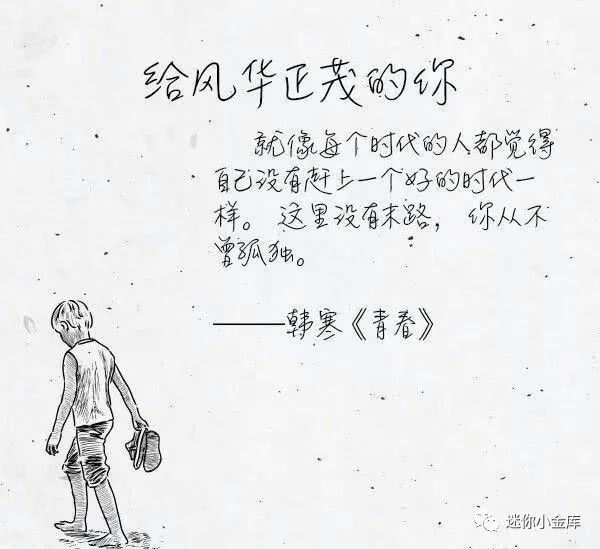 给风华正茂的你
就像每个时代的人都觉得
自己没有赶上一个好的时代一
样。这里没有末路，你从不
曾孤独。
———韩寒《青春》
迷你小金库